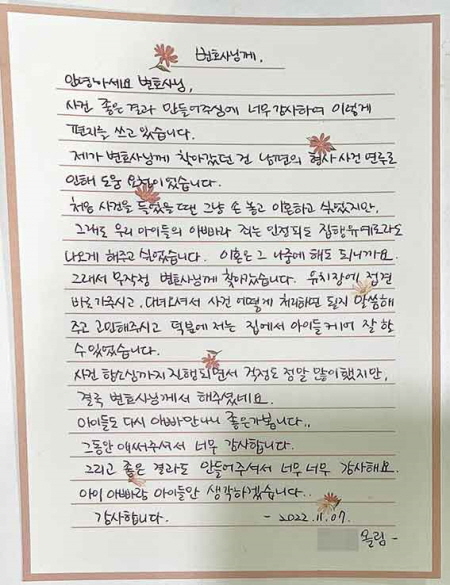 변호사님께,
안녕하세요 변호사님,
사건 좋은 결과 만들어주심에 너무 감사하여 이렇게
편지를 쓰고 있습니다.
제가 변호사님께 찾아갔던 건 남편의 형사 사건 연루로
인해 도움 요청이었습니다.
처음 사건을 들었을 땐 그냥 손 놓고 이혼하고 싶었지만,
그래도 우리 아이들의 아빠라 죄는 인정되도 집행유예로라도
나오게 해주고 싶었습니다. 이혼은 그 나중에 해도 되니까요.
그래서 무작정 변호사님께 찾아갔습니다. 유치장에 접견
바로가주시고, 다녀오셔서 사건 어떻게 처리하면 될지 말씀해
주고 고민해주시고 덕분에 저는 집에서 아이들케어 잘 할
수 있었습니다.
사건 항소심까지 진행되면서 걱정도 정말 많이했지만,
결국 변호사님께서 해주셨네요.
아이들도 다시 아빠만나니 좋은가봅니다..
그동안 애써주셔서 너무 감사합니다.
그리고 좋은 결과도 만들어주셔서 너무 너무 감사해요.
아이 아빠랑 아이들만 생각하겠습니다..
감사합니다. - 2022.11.07.
올림 -